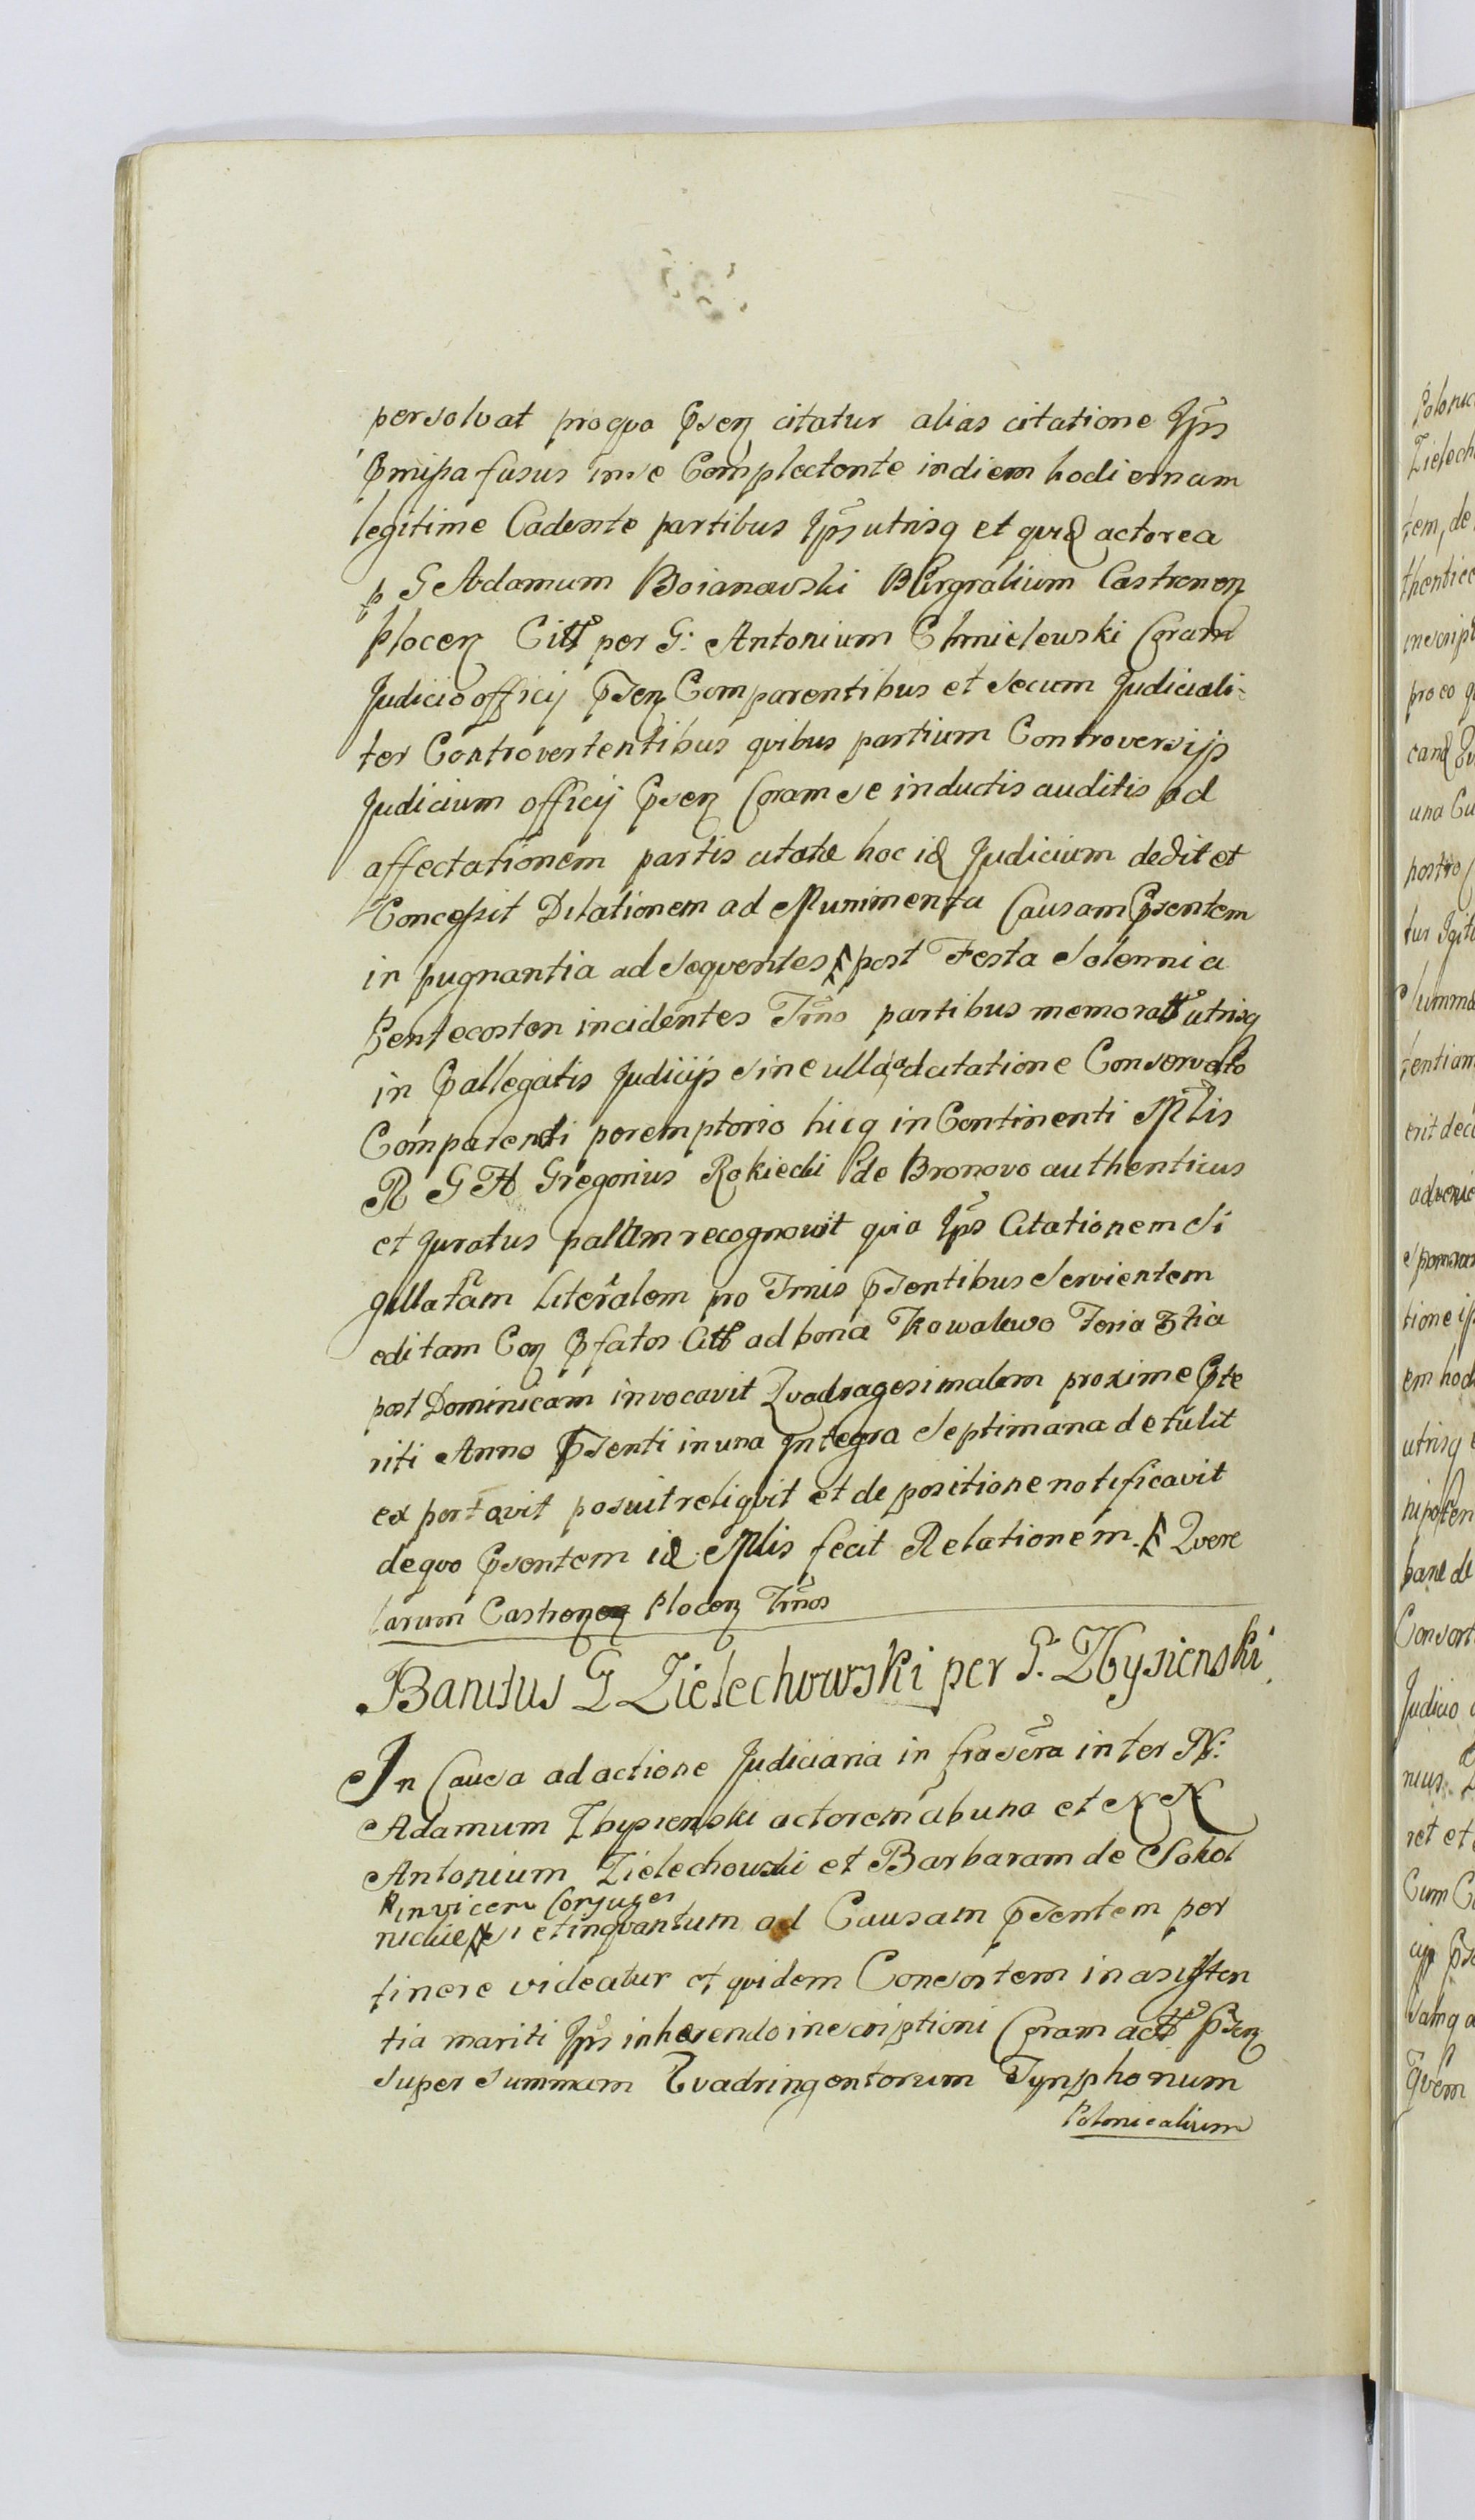 persolvat pro quo Psen citatur alias citatione Ipsˢ
Pmissa fusus in se Complectente in diem hodiernam
legitime Cadente partibus Ips utrisq et quid actorea
p G Adamum Boianowski Burgrabium Castrenen
Plocen Citt per G: Antonium Chmielewski Coram
Judicio officij Psen Comparentibus et secum Judiciali-
ter Controvertentibus quibus partium Controversijs
Judicium officij Psen Coram se inductis auditis ad
affectationem partis citatæ hoc id Judicium dedit et
Concessit Dilationem ad Munimenta Causam Psentem
in pugnantia ad sequentes post Festa Solennia
Pentecosten incidentes Trnos partibus memoratt utrisq
in Pallegatis Judicijs sine ulla adcitatione Conservato
Comparendi peremptorio hicq in Continenti Mlis
R G H Gregorius Rokicki de Bronovo authenticus
et Juratus palam recognovit quia Ips Citationem Si
gillatam Literalem pro Trnis Psentibus Servientem
editam Con Pfatos Citt ad bona Kowalewo Feria 3tia
post Dominicam invocavit Quadragesimalem proxime Pte
riti Anno Psenti in una Integra Septimana detulit
ex portavit posuit reliquit et de positione notificavit
de quo Psentem id Mlis fecit Relationem. Quere
larum Castrenen Plocen Trnos
Banitus G Zielechowski per G. Zbysienski
In Causa ad actione Judiciaria infrascra inter N:
Adamum Zbysienski actorem ab una et N N
Antonium Zielechowski et Barbaram de Sokol
invicem Conjuges
nickie si et inquantum ad Causam Psentem per
tinere videatur et quidem Consortem in assisten
tia mariti Ips inherendo inscriptioni Coram actt Psen
super summam Quadringentorum Tynphonum
Polonicalium